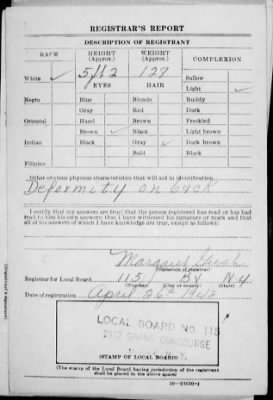 REGISTRAR'S REPORT
DESCRIPTION OF REGISTRANT
RACE HEIGHT (Approx.) WEIGHT (Approx.) COMPLEXION
White ✓ 5 ft 2 127 Sallow
EYES HAIR Light ✓
Negro Blue Blonde Ruddy
Gray Red Dark
Oriental Hazel Brown Freckled
Brown ✓ Black Light brown
Indian Black Gray ✓ Dark brown
Bald Black
Filipino
Other obvious physical characteristics that will aid in identification
Deformity on back
I certify that my answers are true; that the person registered has read or has had
read to him his own answers; that I have witnessed his signature or mark and that
all of his answers of which I have knowledge are true, except as follows:
Margaret
(Signature of registrar)
Registrar for Local Board 115 Bx N.Y.
Date of registration April 26th 1942
LOCAL BOARD NO. 115
GRAND CONCOURSE
N.Y.
(STAMP OF LOCAL BOARD)
(The stamp of the Local Board having jurisdiction of the registrant
shall be placed in the above space)